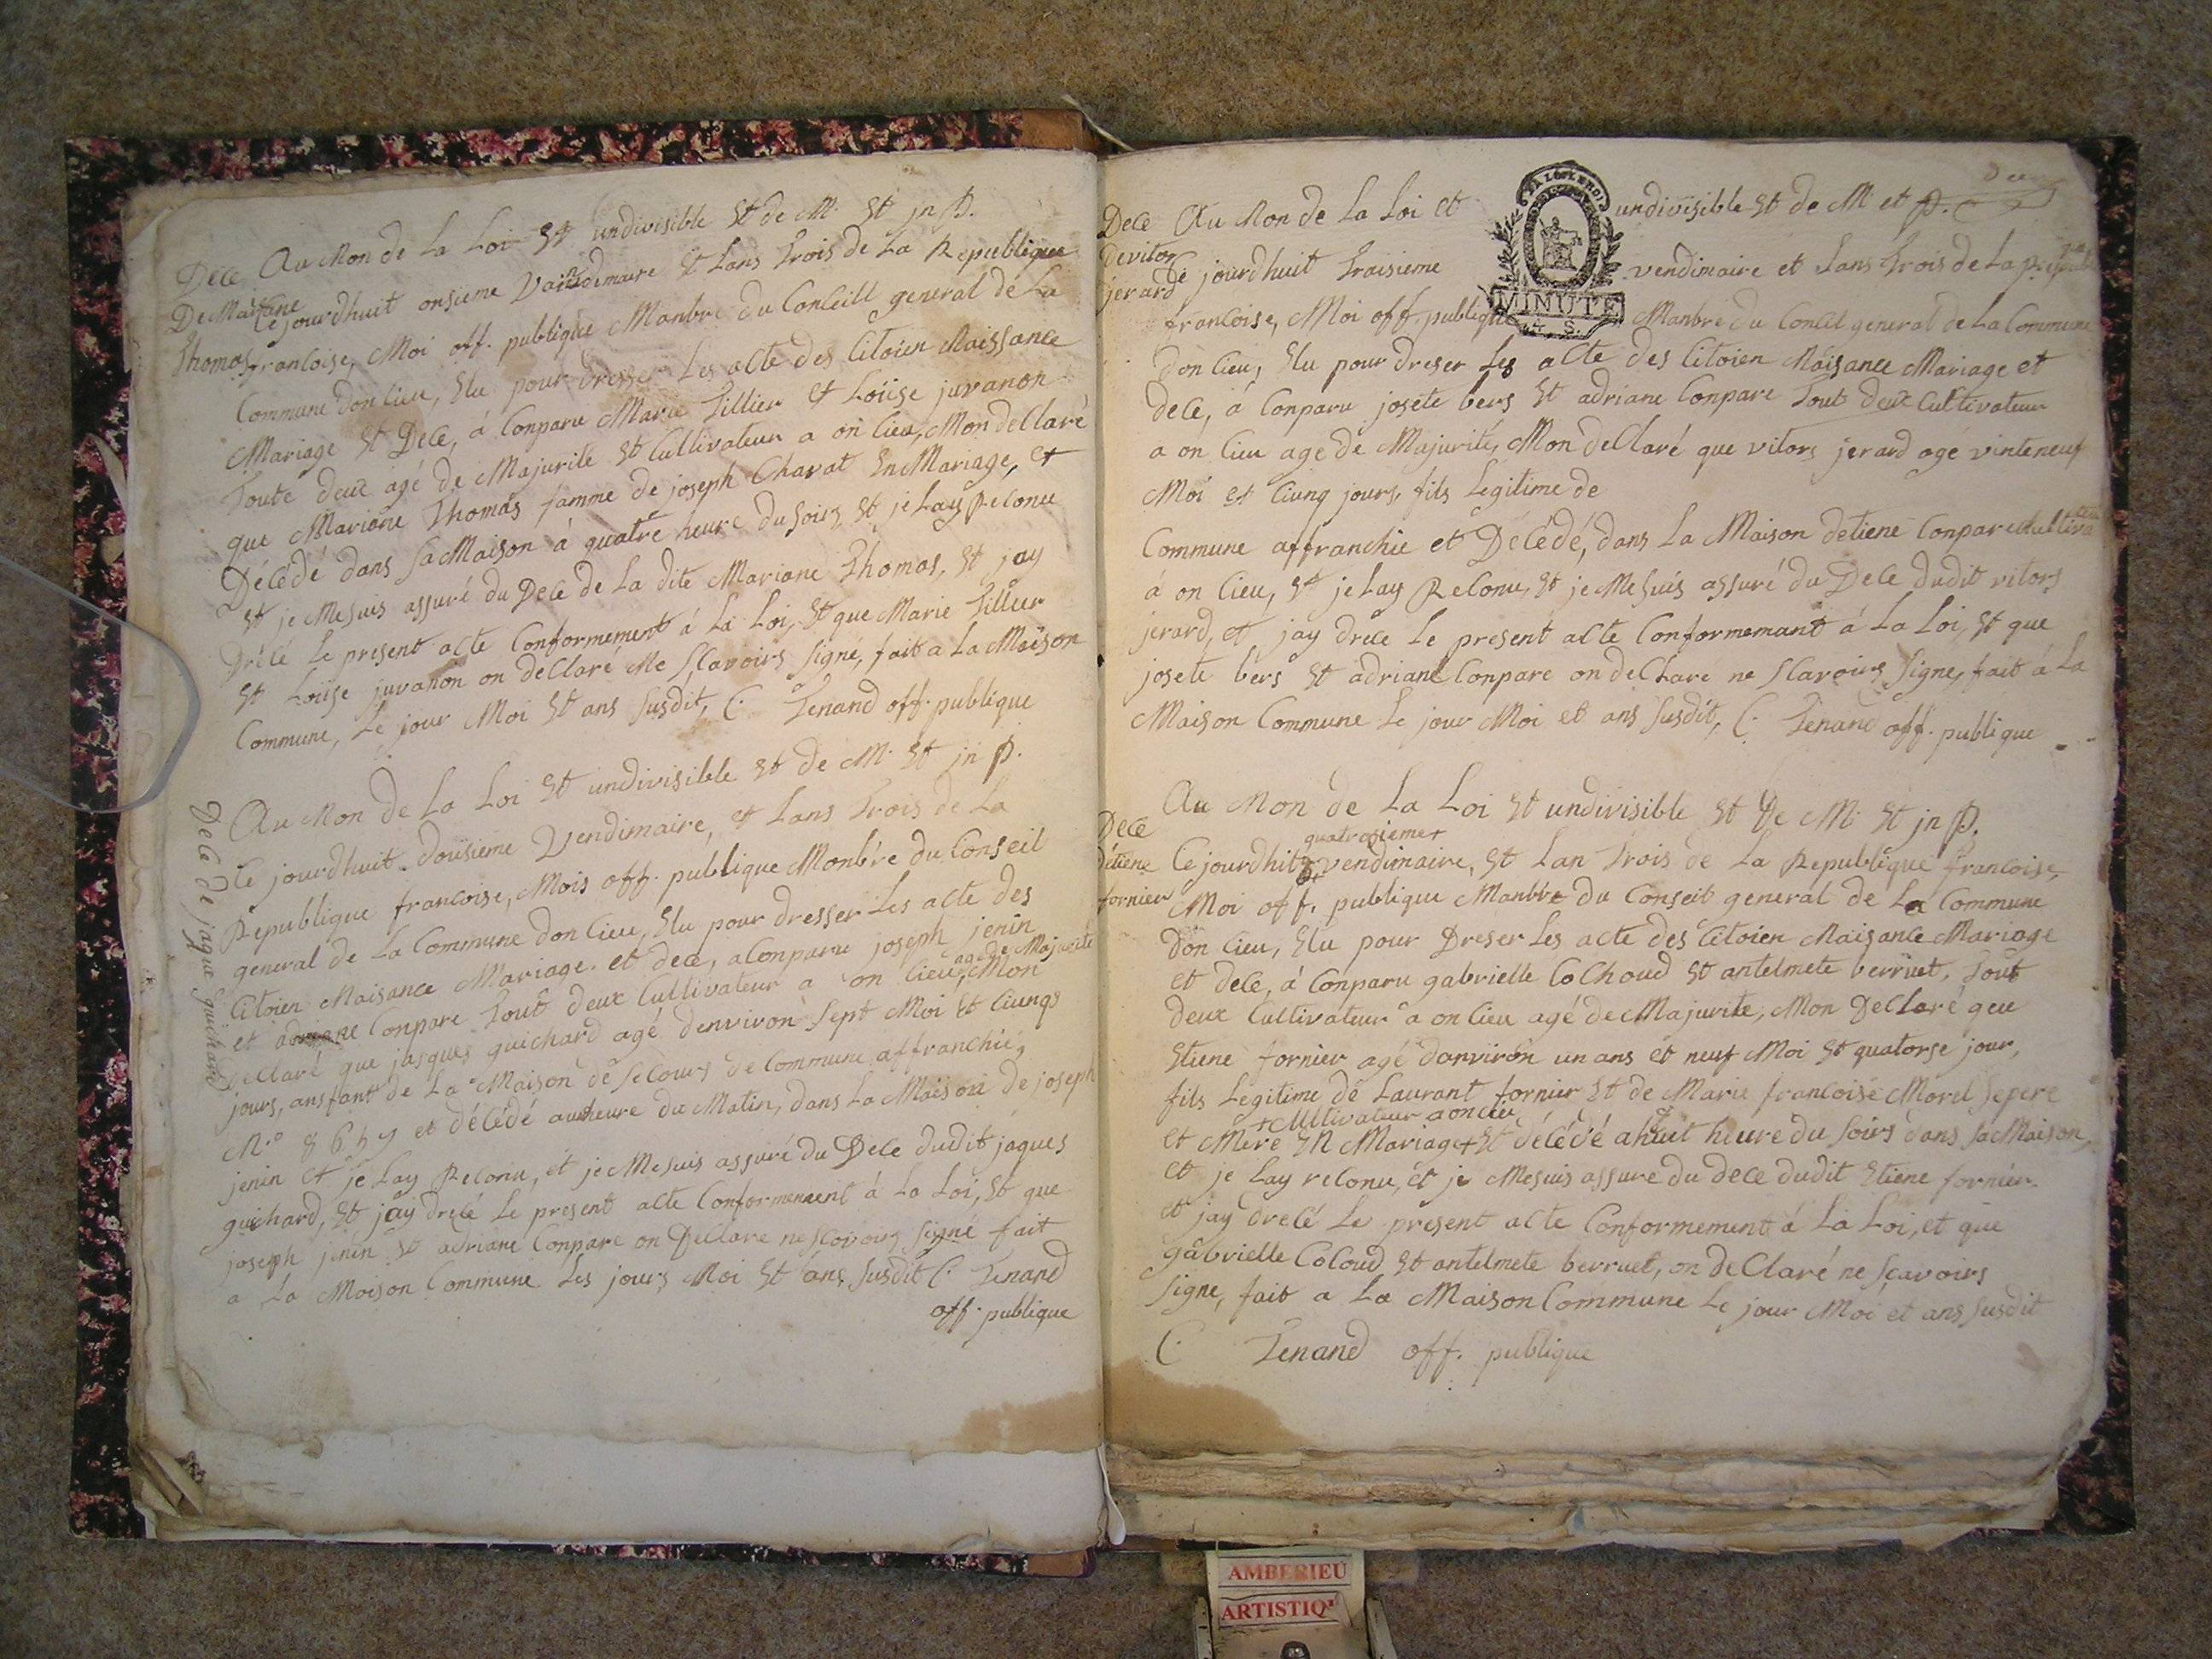 Dece Au Non de La Loi Et undivisible Et de M. Et jn P.
De Mariane
Thomas
Ce jourdhuit onsieme Vandemaire Et Lans Trois de La Republique
francoise, Moi off. publique Manbre du Conceill general de La
Commune donlieu, Elu pour dresser Les acte des Citoien Naissance
Mariage Et Dece, á Conparu Marie Tillier Et Loüse juvanon
Toute deux agé de Majurite Et Cultivateur a on lieu, Mon declaré
que Mariane Thomas famme de joseph Charat En Mariage, et
Décédé dans sa Maison à quatre heure du soirs, Et je Lay Reconu
Et je Me suis assuré du Dece de La dite Mariane Thomas, Et jay
Drécé Le present acte Conformement á La Loi, Et que Marie Tillier
Et Loüse juvanon on declaré Ne Scavoirs Signé, fait a La Maison
Commune, Le jour Moi Et ans Susdit, C. Tenand off. publique
Dece de jaque guichard
Au Non de La Loi Et undivisible Et de M. Et jn P.
Ce jourdhuit dousieme Vendimaire, et Lans Trois de La
Republique francoise, Mois off. publique Monbre du Conseil
general de La Commune don lieu, Elu pour dresser Les acte des
Citoien Naisance Mariage. et dece, a Conparu joseph jenin
et adriane Conpare Tout deux Cultivateur a on lieu, agé de Majurite Mon
Declaré que jasques guichard agé denviron Sept Moi Et Ciunqs
jours, ansfant de La Maison de Secours de Commune affranchie,
N.o et décédé auheure du Matin, dans La Maison de joseph
jenin et je Lay Reconu, et je Mesuis assuré du Dece dudit jaques
guichard, Et jay drecé Le present acte Conformement á La Loi, Et que
joseph jenin Et adriane Conpare on Declare ne scavoirs Signé fait
a La Maison Commune Les jours Moi Et ans Susdit C. Tenand
off. publique
Deux
Dece
devitors
jerard
Au Non de La Loi et undivisible Et de M. et P.
Ce jourdhuit Traisieme vendimaire et Lans Trois de La Republi
francoise, Moi off. publique Manbre du Concil general de La Commune
don lieu, Elu pour dreser Les acte des Citoien Naisance Mariage et
dece, á Conparu josete bers Et adriane Conpare Tout deux Cultivateur
a on lieu age de Majurite, Mon declaré que vitors jerard agé vinteneuf
Moi et Ciunq jours, fils Legitime de
Commune affranchie et Décédé, dans La Maison detiene Conpare Cultiva
á on lieu, Et je Lay Reconu, Et je Me suis assuré du Dece dudit vitors
jerard, et jay drece Le present acte Conformemant á La Loi, Et que
josete bers Et adriane Conpare on declare ne Scavoirs Signe, fait á La
Maison Commune Le jour Moi et ans Susdit, C. Tenand off. publique
MINUTE
4 S.
Dece
detiene
fornier
Au Non de La Loi Et undivisible Et de M. Et jn P.
quatorsieme+
Ce jourdhit vendimaire, Et Lan Trois de La Republique francoise,
Moi off. publique Manbre du Conseit general de La Commune
Don lieu, Elu pour Dreser Les acte des Citoien Naisance Mariage
et dece, á Conparu gabrielle Cochoud Et antelmete berruet, Tout
deux Cultivateur a on lieu agé de Majurite, Mon Declaré geu
Etiene fornier agé danviron un ans et neuf Moi Et quatorse jour,
fils Legitime de Laurant fornier Et de Marie francoise Morel Sepere
+ Cultivateur a on lieu
et Mere EN Mariage+ Et décédé ahuit heure du Soirs dans sa Maison,
et je Lay reconu, et je Mesuis assure du dece dudit Etiene fornier.
et jay drecé Le present acte Conformement á La Loi, et que
gabrielle Coloud Et antelmete berruet, on declaré ne Scavoirs
Signe, fait a La Maison Commune Le jour Moi et ans Susdit
C. Tenand off. publique
AMBERIEU
ARTISTIQ